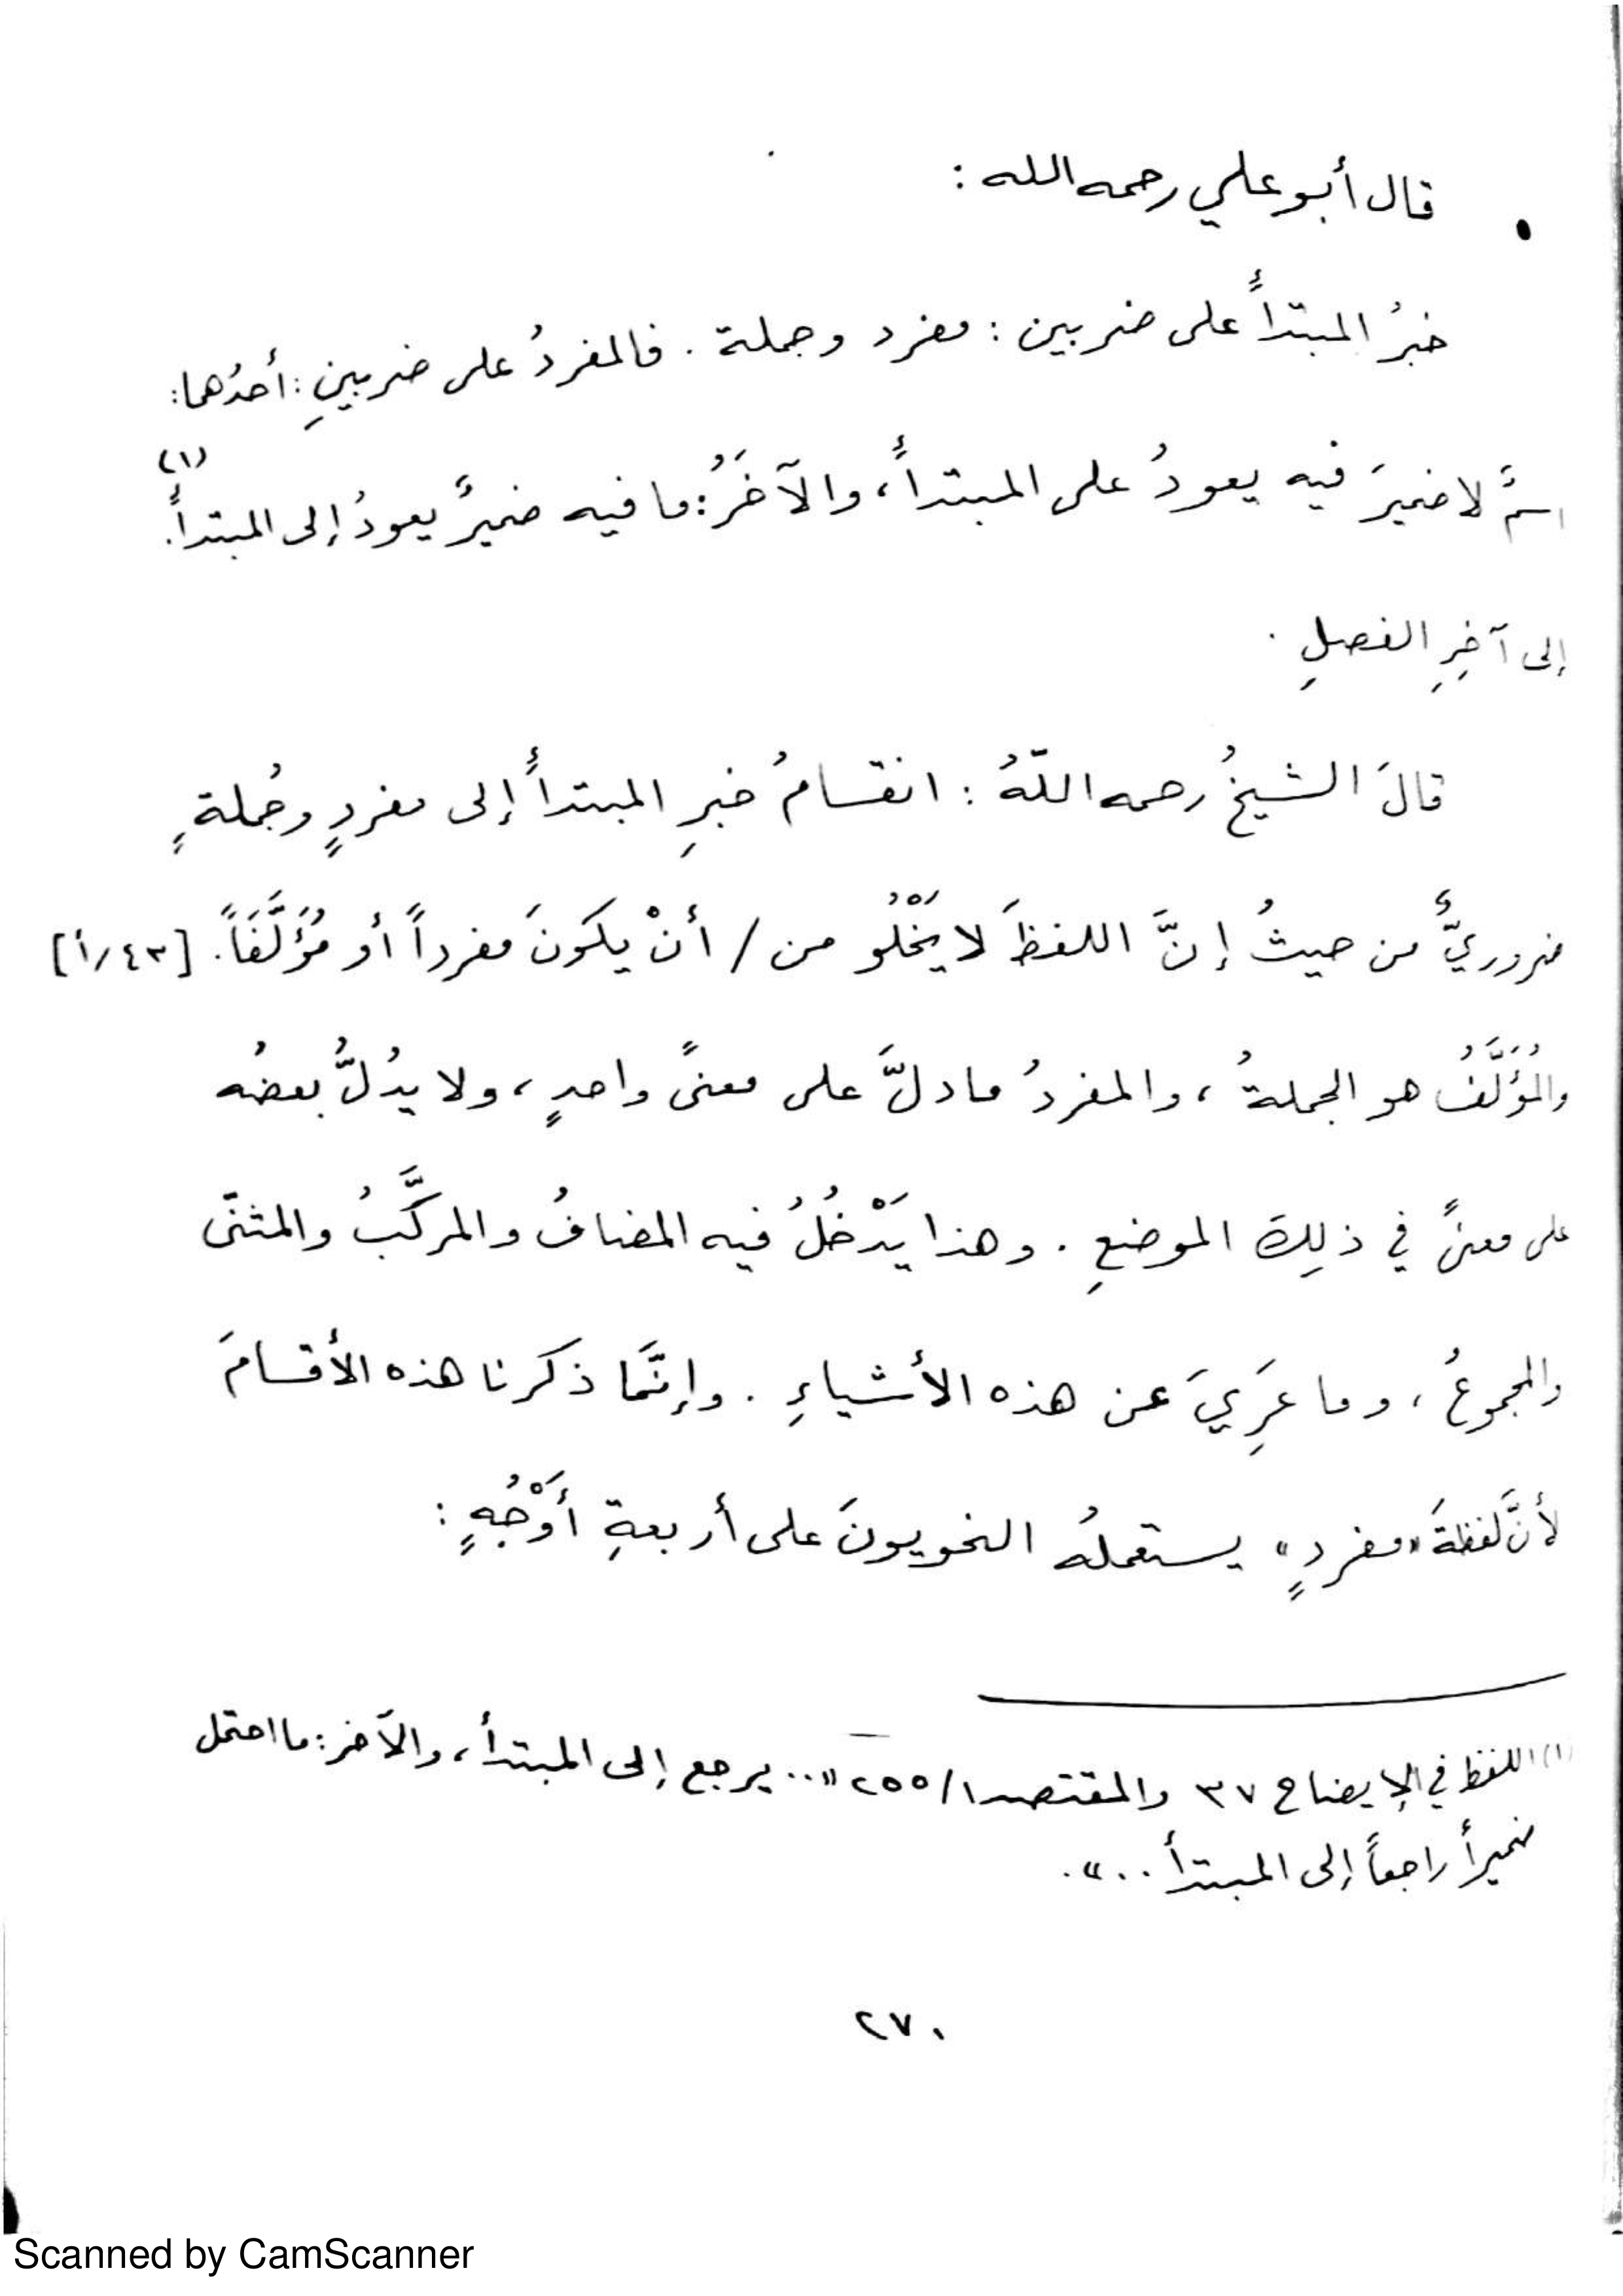 قال أبو علي رحمه الله :
خبرُ المبتدأِ على ضربين : مفرد وجملة . فالمفردُ على ضربينِ : أحدُهما :
اسمٌ لا ضميرَ فيه يعودُ على المبتدأِ، والآخَرُ : ما فيه ضميرٌ يعودُ إلى المبتدأِ.(١)
إلى آخِرِ الفصلِ .
قالَ الشيخُ رحمه اللّهُ : انقسامُ خبرِ المبتدأِ إلى مفردٍ وجُملةٍ
ضروريٌّ من حيثُ إنَّ اللفظَ لا يَخْلُو من / أنْ يكونَ مفرداً أو مُؤَلَّفَاً. [٤٣/أ]
والمُؤَلَّفُ هو الجملةُ ، والمفردُ ما دلَّ على معنىً واحدٍ ، ولا يدُلُّ بعضُه
على معنىً في ذلِكَ الموضعِ . وهذا يَدْخُلُ فيه المضافُ والمركَّبُ والمثنّى
والمجموعُ ، وما عَرِيَ عن هذه الأشياءِ . وإنَّما ذكرنا هذه الأقسامَ
لأنَّ لفظةَ «مفردٍ» يستعملُه النحويونَ على أربعةِ أَوْجُهٍ :
(١) اللفظ في الإيضاح ٣٧ والمقتصد ١/ ٢٥٥ «.. يرجع إلى المبتدأ ، والآخر : ما احتمل
ضميراً راجعاً إلى المبتدأ ..» .
٢٧٠
Scanned by CamScanner